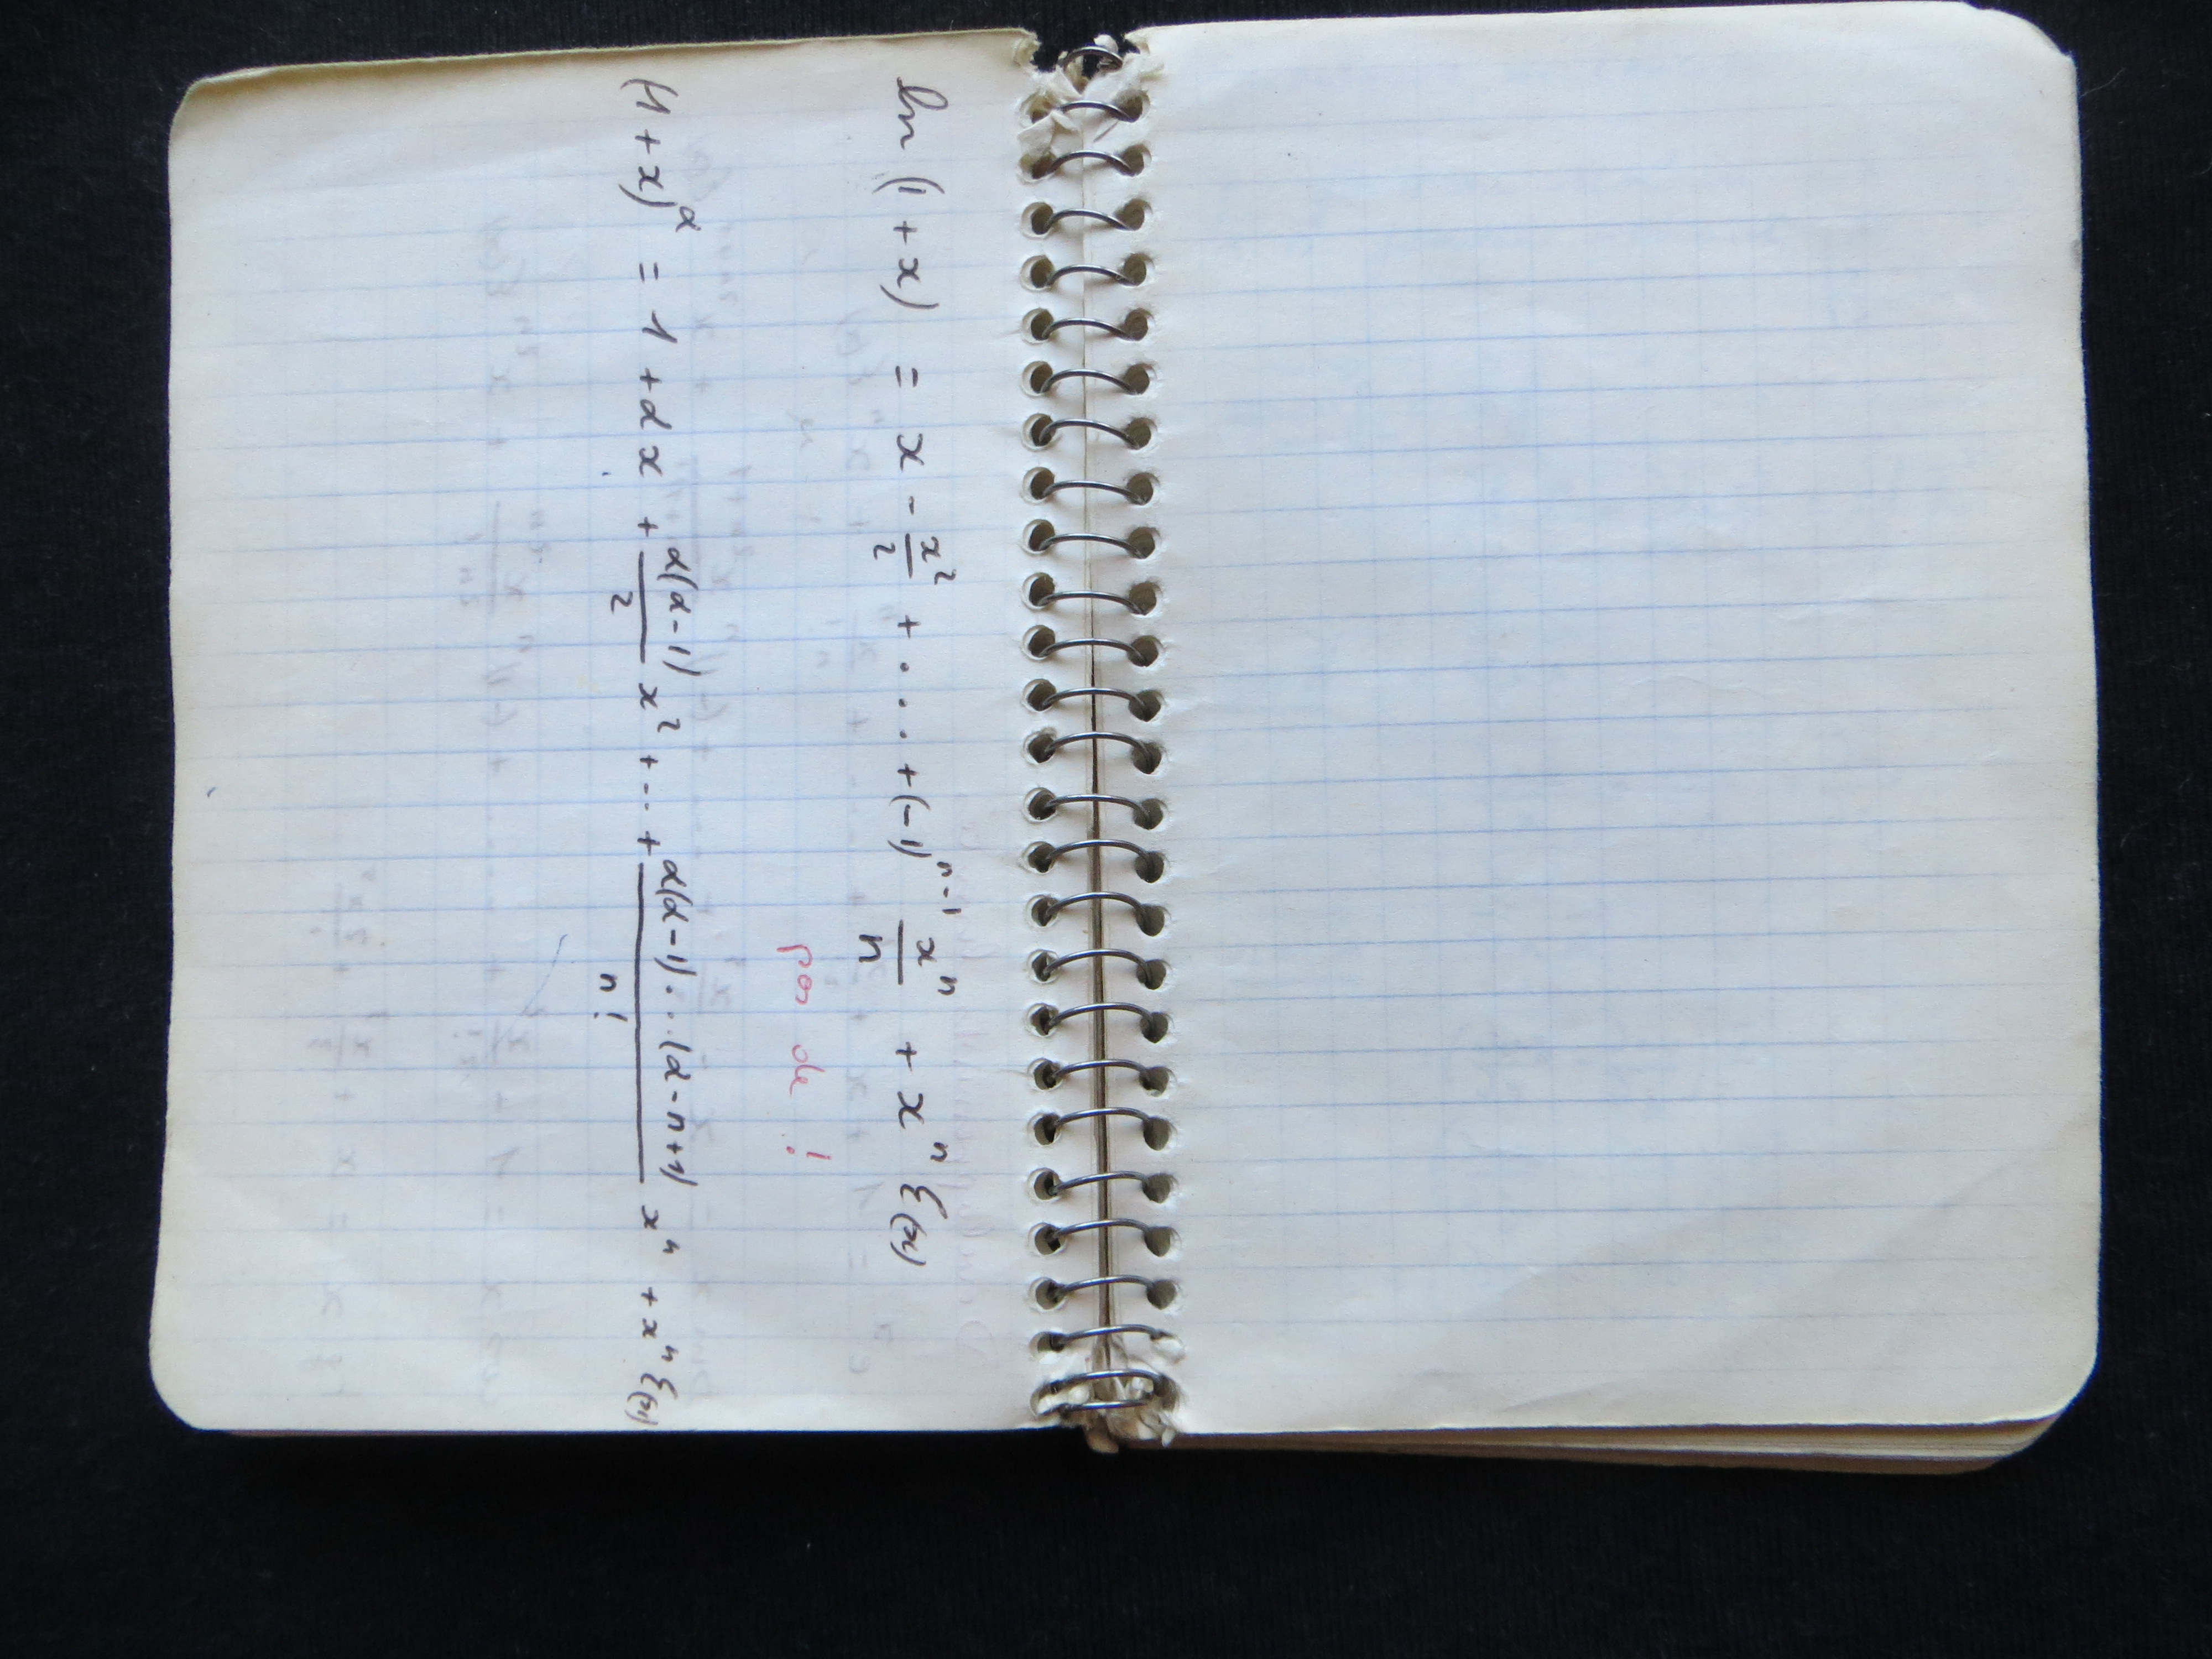 ln (1 + x) = x - x²/2 + .... + (-1)ⁿ⁻¹ xⁿ/n + xⁿ ξ(x)
pas de !
(1 + x)^α = 1 + αx + α(α-1)/2 x² + ... + α(α-1)...(α-n+1)/n! xⁿ + xⁿ ξ(x)